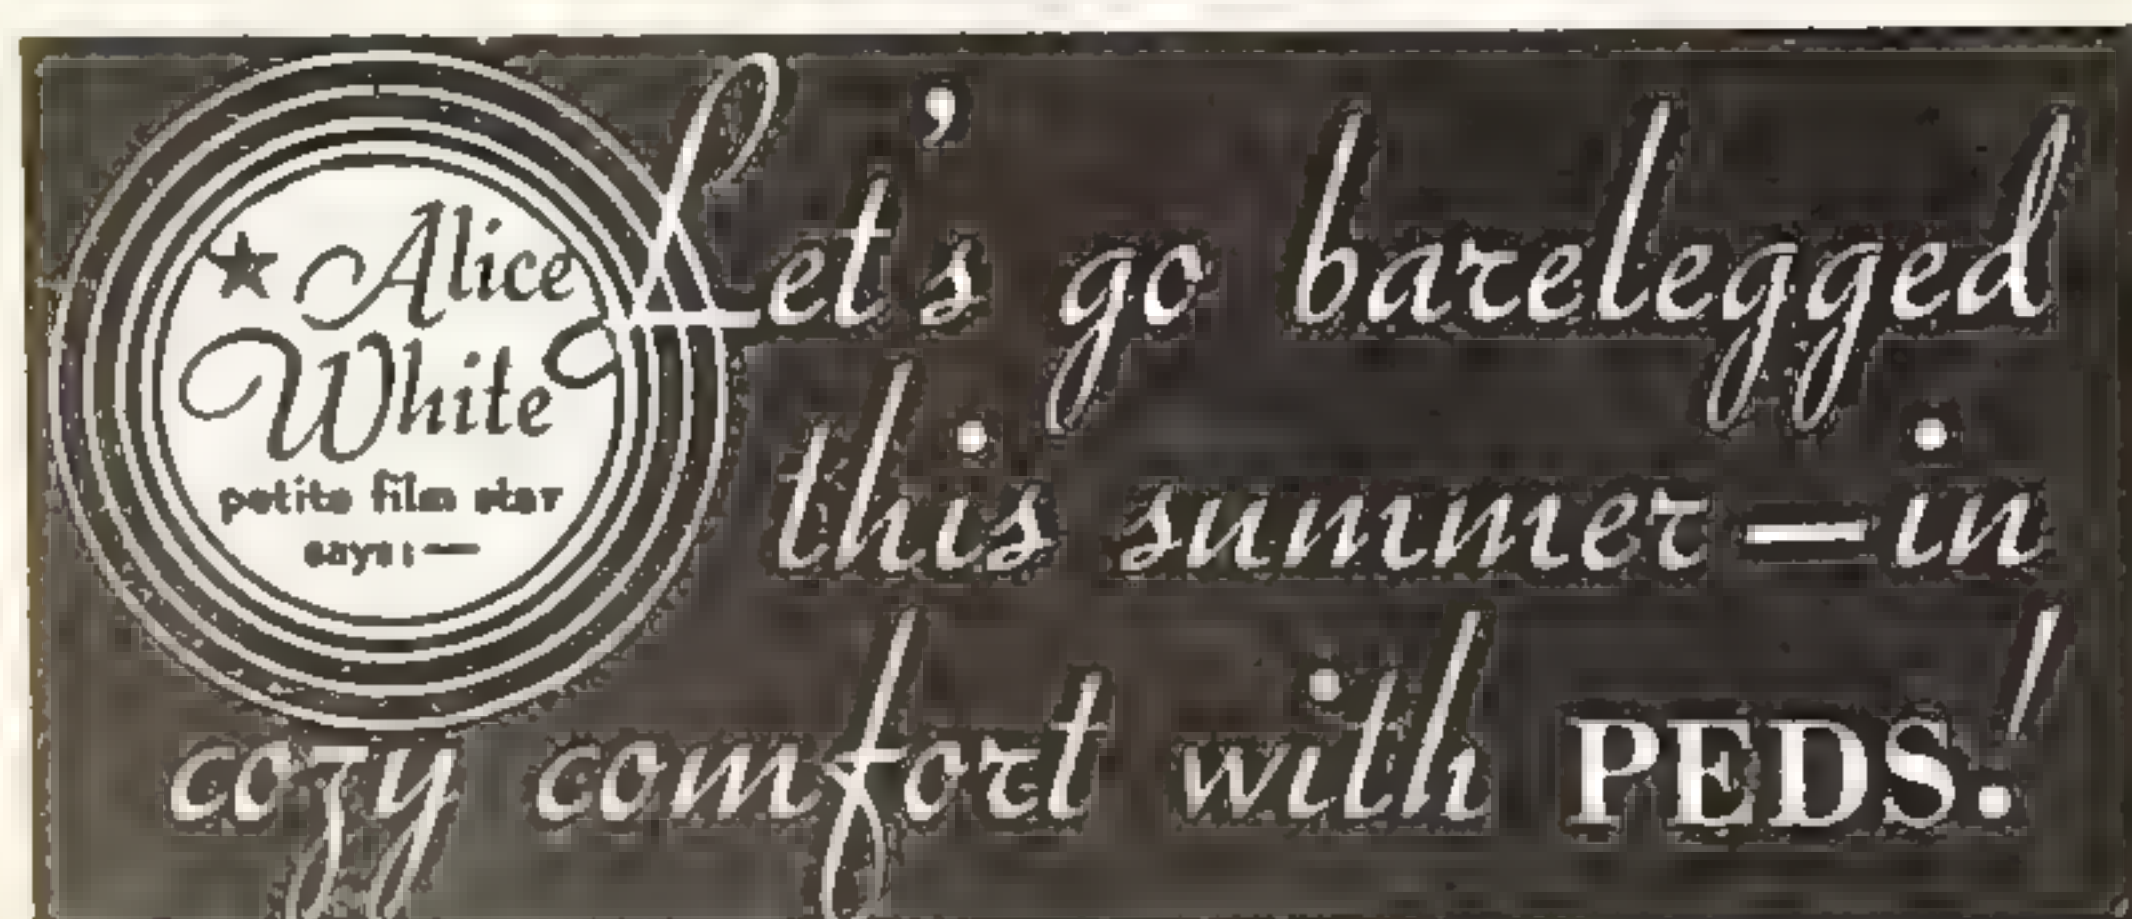 ★ Alice
White
petite film star
says:—
Let's go barelegged
this summer—in
cozy comfort with PEDS.!